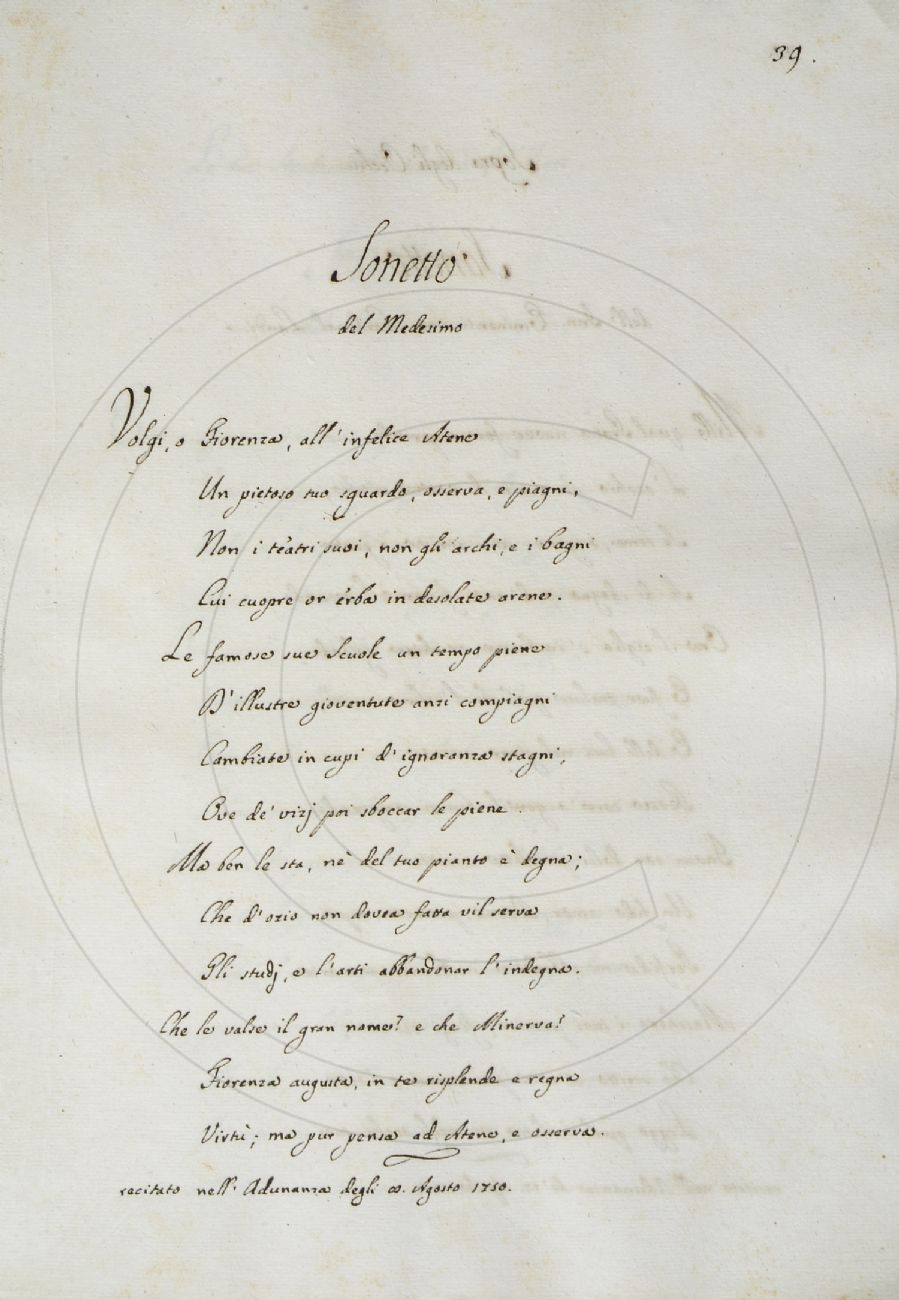 39.
Sonetto
del Medesimo
Volgi, o Fiorenza, all' infelice Atene
Un pietoso tuo sguardo, osserva, e piagni,
Non i teatri suoi, non gli archi, e i bagni
Cui cuopre or erba in desolate arene.
Le famose sue Scuole un tempo piene
D' illustre gioventute anzi compiagni
Cambiate in cupi d' ignoranza stagni,
Ove de' vizj poi sboccar le piene.
Ma ben le sta, nè del tuo pianto è degna;
Che d' ozio non dovea fatta vil serva
Gli studj, e l' arti abbandonar l' indegna.
Che le valse il gran nome? e che Minerva?
Fiorenza augusta, in te risplende e regna
Virtù; ma pur pensa ad Atene, e osserva.
recitato nell' Adunanza degli 8. Agosto 1750.